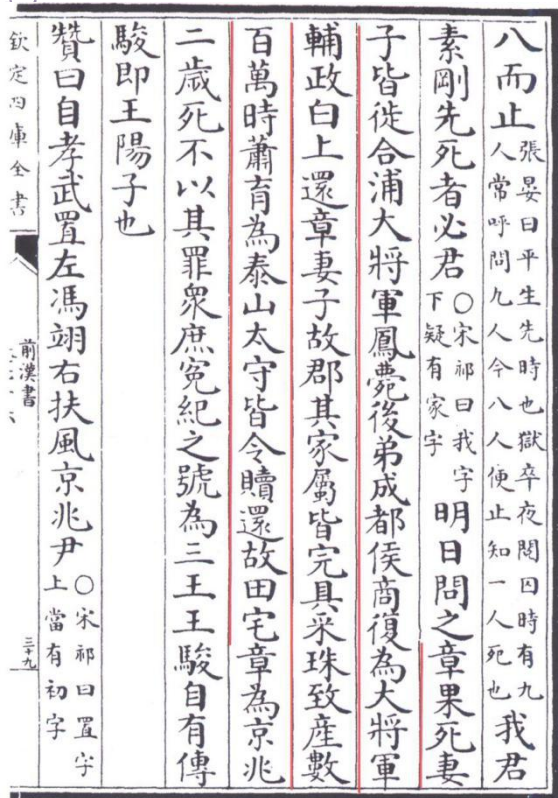 八而止張晏曰平生先時也獄卒夜閱囚時有九
人常呼問九人今八人便止知一人死也我君
素剛先死者必君○宋祁曰我字
下疑有家字明日問之章果死妻
子皆徙合浦大將軍鳳薨後弟成都侯商復為大將軍
輔政白上還章妻子故郡其家屬皆完具采珠致產數
百萬時蕭育為泰山太守皆令贖還故田宅章為京兆
二歲死不以其罪衆庶冤紀之號為三王王駿自有傳
駿即王陽子也
贊曰自孝武置左馮翊右扶風京兆尹○宋祁曰置字
上當有初字
欽定四庫全書
前漢書
三十九